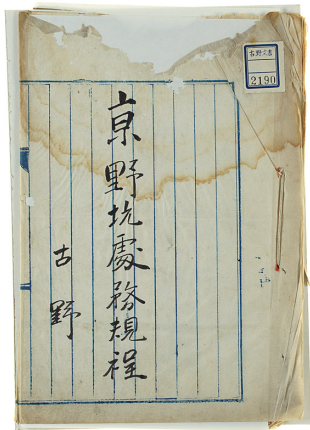 古野文書
2190
京野坑處務規程
古野